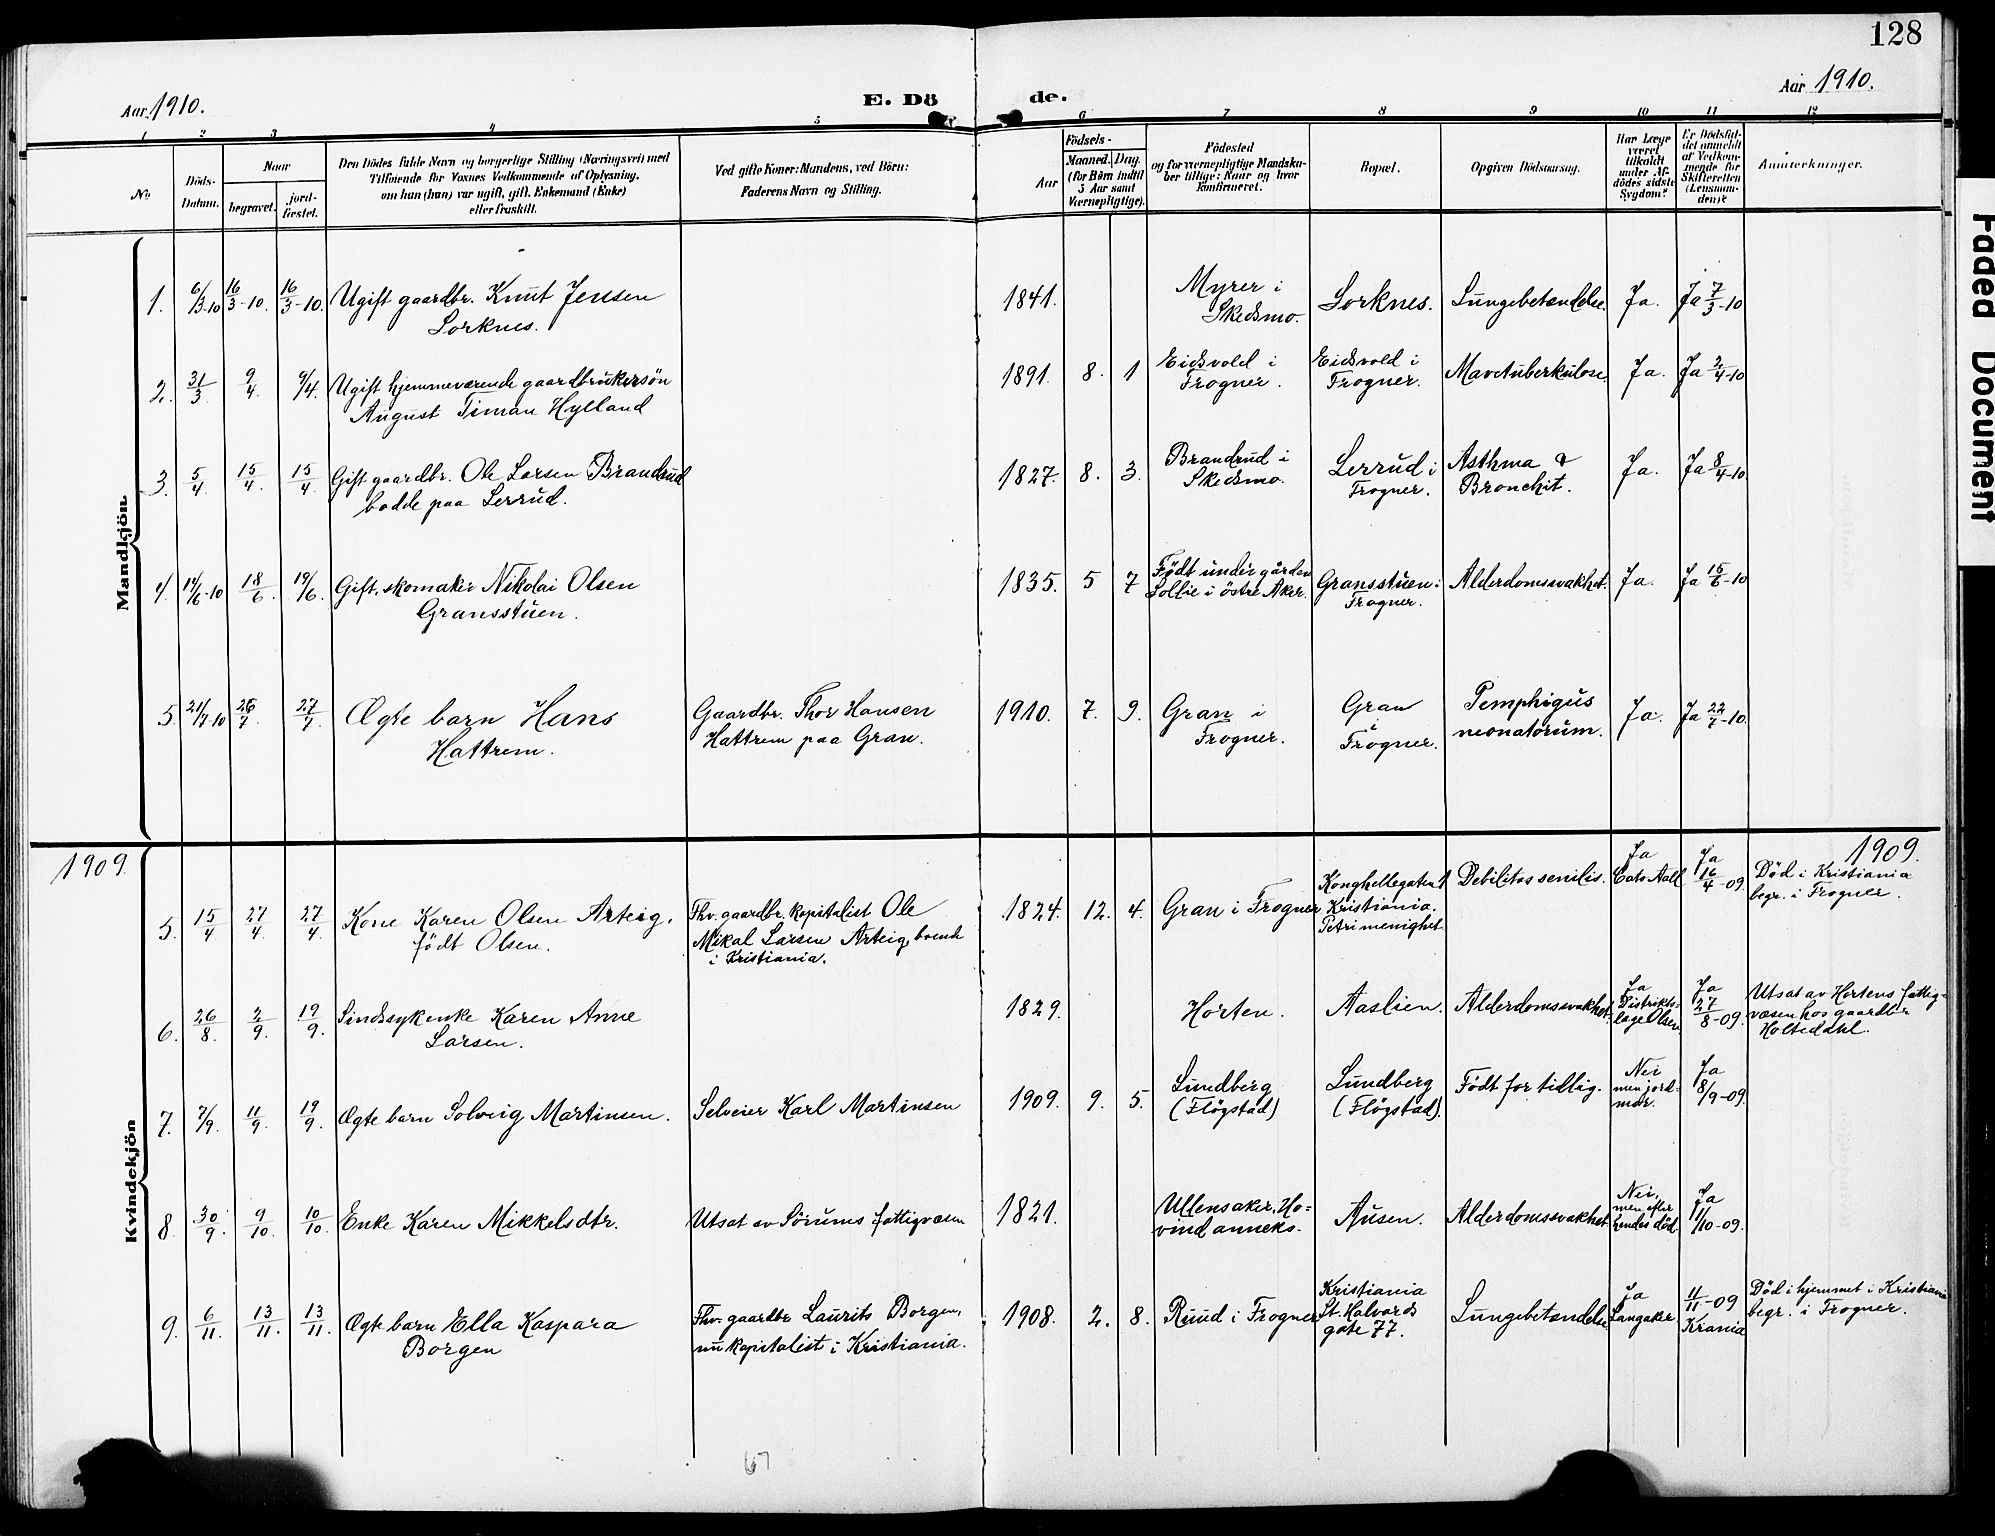 128
Aar 1910.
E. Dö
de.
Aar 1910.
1 2 3 4 5 6 7 8 9 10 11 12
No.
Döds-
Datum.
Naar
begravet.
jord-
fæstet.
Den Dödes fulde Navn og borgerlige Stilling (Næringsvei) med
Tilföiende for Voxnes Vedkommende af Oplysning,
om han (hun) var ugift, gift, Enkemand (Enke)
eller fraskilt.
Ved gifte Koner: Mandens, ved Börn:
Faderens Navn og Stilling.
Födsels-
Aar
Maaned. Dag.
(for Börn indtil
5 Aar samt
Værnepligtige).
Födested
og for værnepligtige Mandska-
ber tillige: Naar og hvor
konfirmeret.
Bopæl.
Opgiven Dödsaarsag.
Har Læge
været
tilkaldt
under Af-
dödes sidste
Sygdom?
Er Dödsfal-
det anmeldt
af Vedkom-
mende for
Skifteretten
(Lensman-
den)?
Anmærkninger.
Mandkjön
1. 6/3-10 16/3-10. 16/3-10. Ugift gaardbr. Knut Jensen
Sorknes.
1841. Myrer i
Skedsmo.
Sorknes. Lungebetændelse. Ja. Ja 7/3-10
2. 31/3. 9/4 9/4. Ugift hjemmeværende gaardbrukersön
August Timan Hylland
1891. 8. 1 Eidsvold i
Frogner.
Eidsvold i
Frogner.
Mavetuberkulose. Ja. Ja 2/4-10
3. 5/4. 15/4. 15/4. Gift gaardbr. Ole Larsen Brandrud
bodde paa Lerrud.
1827. 8. 3. Brandrud i
Skedsmo.
Lerrud i
Frogner.
Asthma &
Bronchit.
Ja. Ja 8/4-10.
4. 14/6-10 18/6. 19/6. Gift, skomaker Nikolai Olsen
Gransstuen.
1835. 5 7 Född under gården
Sollie i östre Aker.
Gransstuen i
Frogner.
Alderdomssvakhet. Ja. Ja 15/6-10
5. 21/7-10 26/7. 27/7. Ægte barn Hans
Hattrem.
Gaardbr. Thor Hansen
Hattrem paa Gran.
1910. 7. 9. Gran i
Frogner.
Gran
i
Frogner.
Pemphigus
neonatorum.
Ja. Ja 22/7-10.
1909.
1909.
Kvindekjön
5. 15/4. 27/4. 27/4. Kone Karen Olsen Arteig,
födt Olsen.
Fhv. gaardbr. kapitalist Ole
Mikal Larsen Arteig, boende
i Kristiania.
1824. 12. 4. Gran i Frogner
Konghellegaten 1
Kristiania.
Petri menighet.
Debilitas senilis. Ja
Cato Aall
Ja
16/4-09.
Död i Kristiania
begr. i Frogner.
6. 26/8. 2/9. 19/9. Sindssykenke Karen Anne
Larsen.
1829. Horten. Aaslien. Alderdomssvakhet. Ja
Distrikts-
læge Olsen
Ja
27/8-09.
Utsat av Hortens fattig-
væsen hos gaardbr
Holtedahl.
7. 7/9. 11/9. 19/9. Ægte barn Solveig Martinsen.
Selveier Karl Martinsen
1909. 9. 5. Lundberg
(Flögstad)
Lundberg
(Flögstad).
Födt for tidlig. Nei
men jord-
mor.
Ja
8/9-09.
8. 30/9. 9/10. 10/10. Enke Karen Mikkelsdtr.
Utsat av Sörums fattigvæsen
1821. Ullensaker, Ho-
vind anneks.
Ausen. Alderdomssvakhet. Nei,
men efter
hendes död.
Ja
11/10-09.
9. 6/11. 13/11. 13/11. Ægte barn Ella Kaspara
Borgen
Fhv. gaardbr. Laurits Borgen,
nu kapitalist i Kristiania.
1908. 2. 8. Ruud i Frogner
Kristiania
St. Halvards
gate 77.
Lungebetændelse Ja
Langaker
11/11-09
Krania
Död i hjemmet i Kristiania
begr. i Frogner.
67
Faded Document